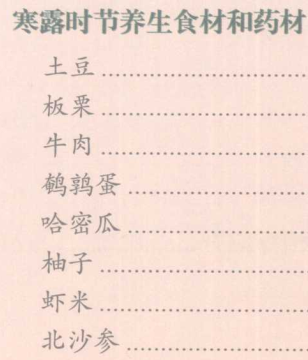 寒露时节养生食材和药材
土豆
板栗
牛肉
鹌鹑蛋
哈密瓜
柚子
虾米
北沙参